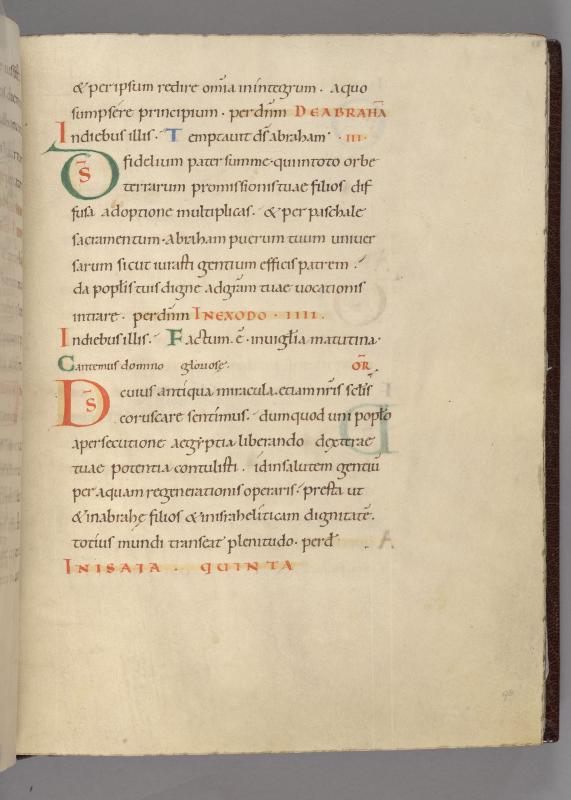 & per ipsum redire om̄ia in integrum · a quo
sumpsere principium · per dn̄m DE ABRAHĀ
In diebus illis · Temptavit dſ̄ abraham · III ·
DS̄ fidelium pater summe · qui in toto orbe
terrarum promissionis tuae filios dif
fusa adoptione multiplicas · & per paschale
sacramentum · abraham puerum tuum univer
sarum sicut iurasti gentium efficis patrem ·
da populis tuis digne ad grām tuae vocationis
intrare · per dn̄m IN EXODO · IIII ·
In diebus illis · Factum · ē · in vigl̄ia matutina ·
Cantemus domino gloriose · OR̄
DS̄ cuius antiqua miracula · etiam nr̄is sclīs
coruscare sentimus · dum quod uni poplo
a persecutione aegyptia liberando dexterae
tuae potentia contulisti · id in salutem gentiū
per aquam regenerationis operaris · presta ut
& in abrahę filios & in israheliticam dignitatē ·
totius mundi transeat plenitudo · per d
IN ISAIA · QUINTA
98